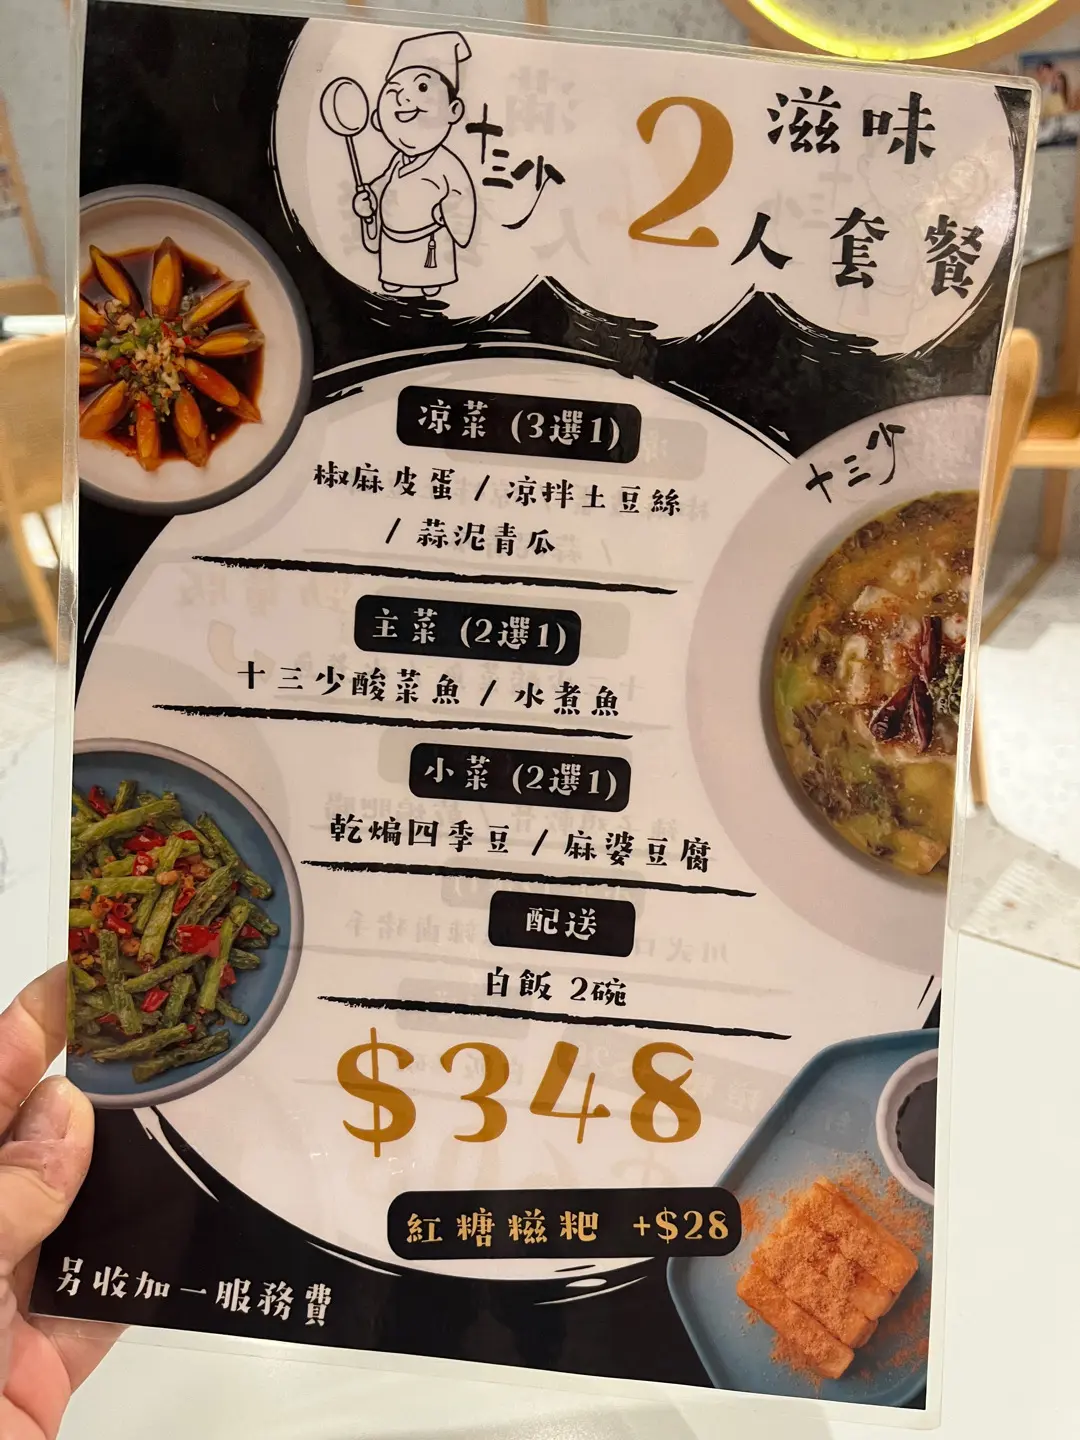 十三少
2 滋味
人套餐
凉菜 (3選1)
椒麻皮蛋 / 凉拌土豆絲
/ 蒜泥青瓜
十三少
主菜 (2選1)
十三少酸菜魚 / 水煮魚
小菜 (2選1)
乾煸四季豆 / 麻婆豆腐
配送
白飯 2碗
$348
紅糖糍粑 +$28
另收加一服務費